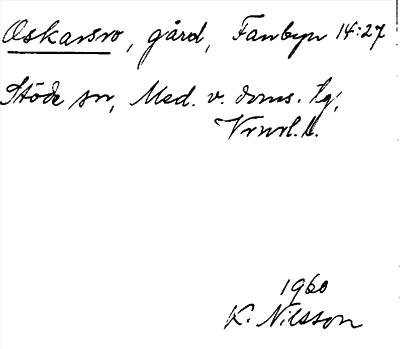 Oskarsro, gård, Fanbyn 14:27
Stöde sn, Med. v. doms. tg,
Vrnrl. l.
1960
K. Nilsson